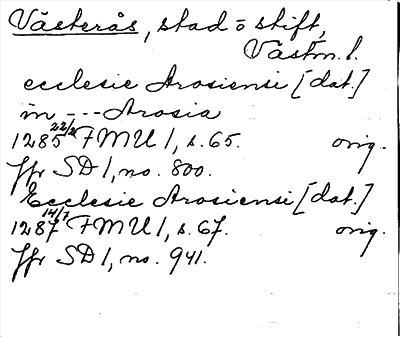 Västerås, stad o stift,
Västm. l.
ecclesie Arosiensi [dat.]
in --- Arosia
1285 22/2 FMU 1, s. 65. orig.
Jfr SD 1, no. 800.
Ecclesie Arosiensi [dat.]
1287 14/7 FMU 1, s. 67. orig.
Jfr SD 1, no. 941.